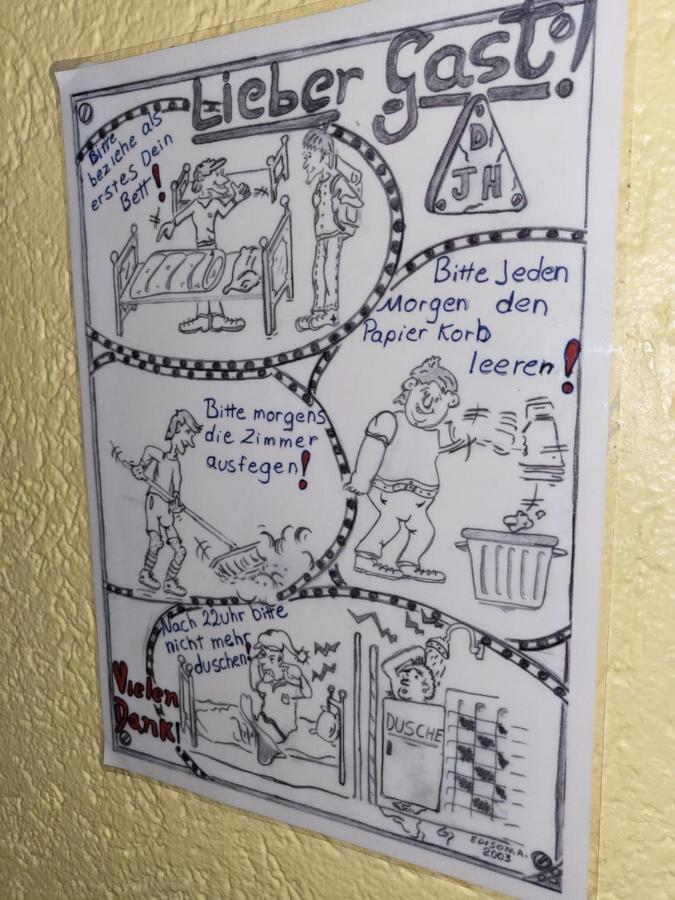 Lieber Gast!
DJH
Bitte
beziehe als
erstes Dein
Bett!
Bitte Jeden
Morgen den
Papier Korb
leeren!
Bitte morgens
die Zimmer
ausfegen!
Nach 22Uhr bitte
nicht mehr
duschen!
DUSCHE
Vielen
Dank
EDISON.A.
2003